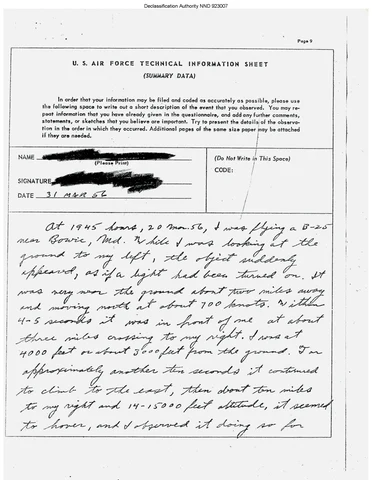 Declassification Authority NND 923007
Page 9
U. S. AIR FORCE TECHNICAL INFORMATION SHEET
(SUMMARY DATA)
In order that your information may be filed and coded as accurately as possible, please use
the following space to write out a short description of the event that you observed. You may re-
peat information that you have already given in the questionnaire, and add any further comments,
statements, or sketches that you believe are important. Try to present the details of the observa-
tion in the order in which they occurred. Additional pages of the same size paper may be attached
if they are needed.
NAME
(Please Print)
SIGNATURE
DATE 31 MAR 56
(Do Not Write in This Space)
CODE:
At 1945 hours, 20 Mar. 56, I was flying a B-25
near Bowie, Md. While I was looking at the
ground to my left, the object suddenly
appeared, as if a light had been turned on. It
was very near the ground about two miles away
and moving north at about 700 knots. Within
4-5 seconds it was in front of me at about
three miles crossing to my right. I was at
4000 feet or about 3000 feet from the ground. In
approximately another ten seconds it continued
to climb to the east, then about ten miles
to my right and 14-15000 feet altitude, it seemed
to hover, and I observed it doing so for